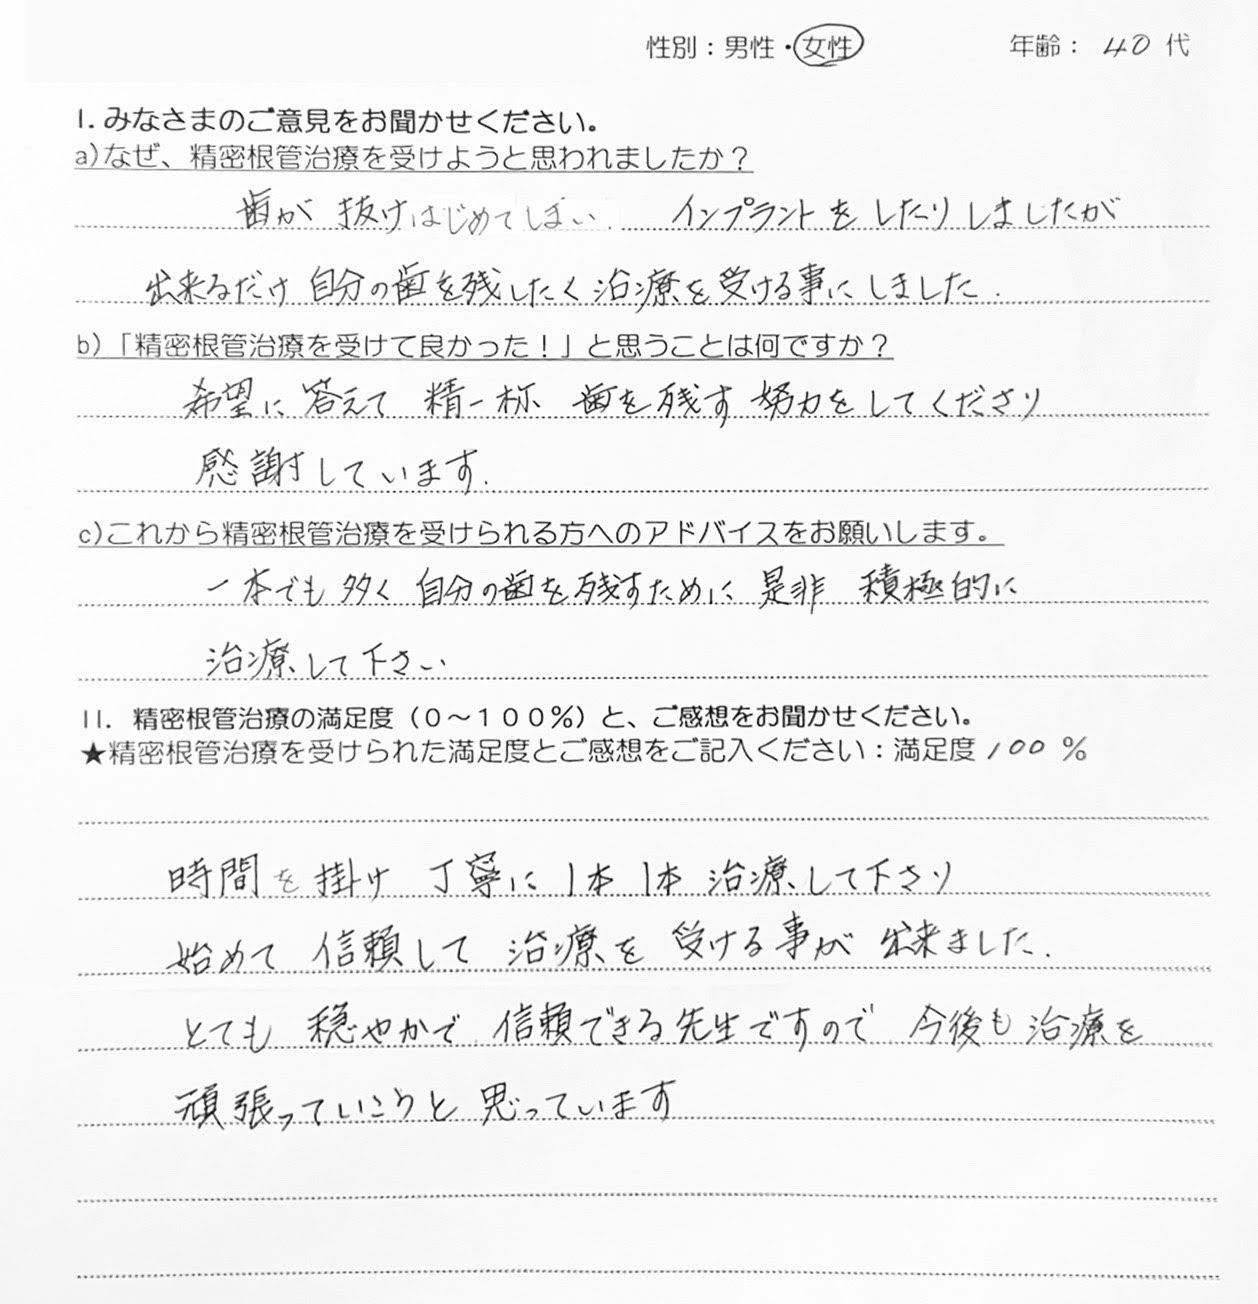 性別：男性・女性 年齢：40代
I. みなさまのご意見をお聞かせください。
a)なぜ、精密根管治療を受けようと思われましたか？
歯が 抜けはじめてしまい インプラントをしたりしましたが
出来るだけ 自分の歯を残したく治療を受ける事にしました.
b)「精密根管治療を受けて良かった！」と思うことは何ですか？
希望に 答えて 精一杯 歯を残す努力をしてくださり
感謝しています.
c)これから精密根管治療を受けられる方へのアドバイスをお願いします。
一本でも多く 自分の歯を残すために 是非 積極的に
治療して下さい
II. 精密根管治療の満足度（０～１００％）と、ご感想をお聞かせください。
★精密根管治療を受けられた満足度とご感想をご記入ください：満足度 100 ％
時間を掛け 丁寧に 1本 1本 治療して下さり
始めて 信頼して 治療を 受ける事が 出来ました.
とても 穏やかで 信頼できる先生ですので 今後も 治療を
頑張っていこうと 思っています